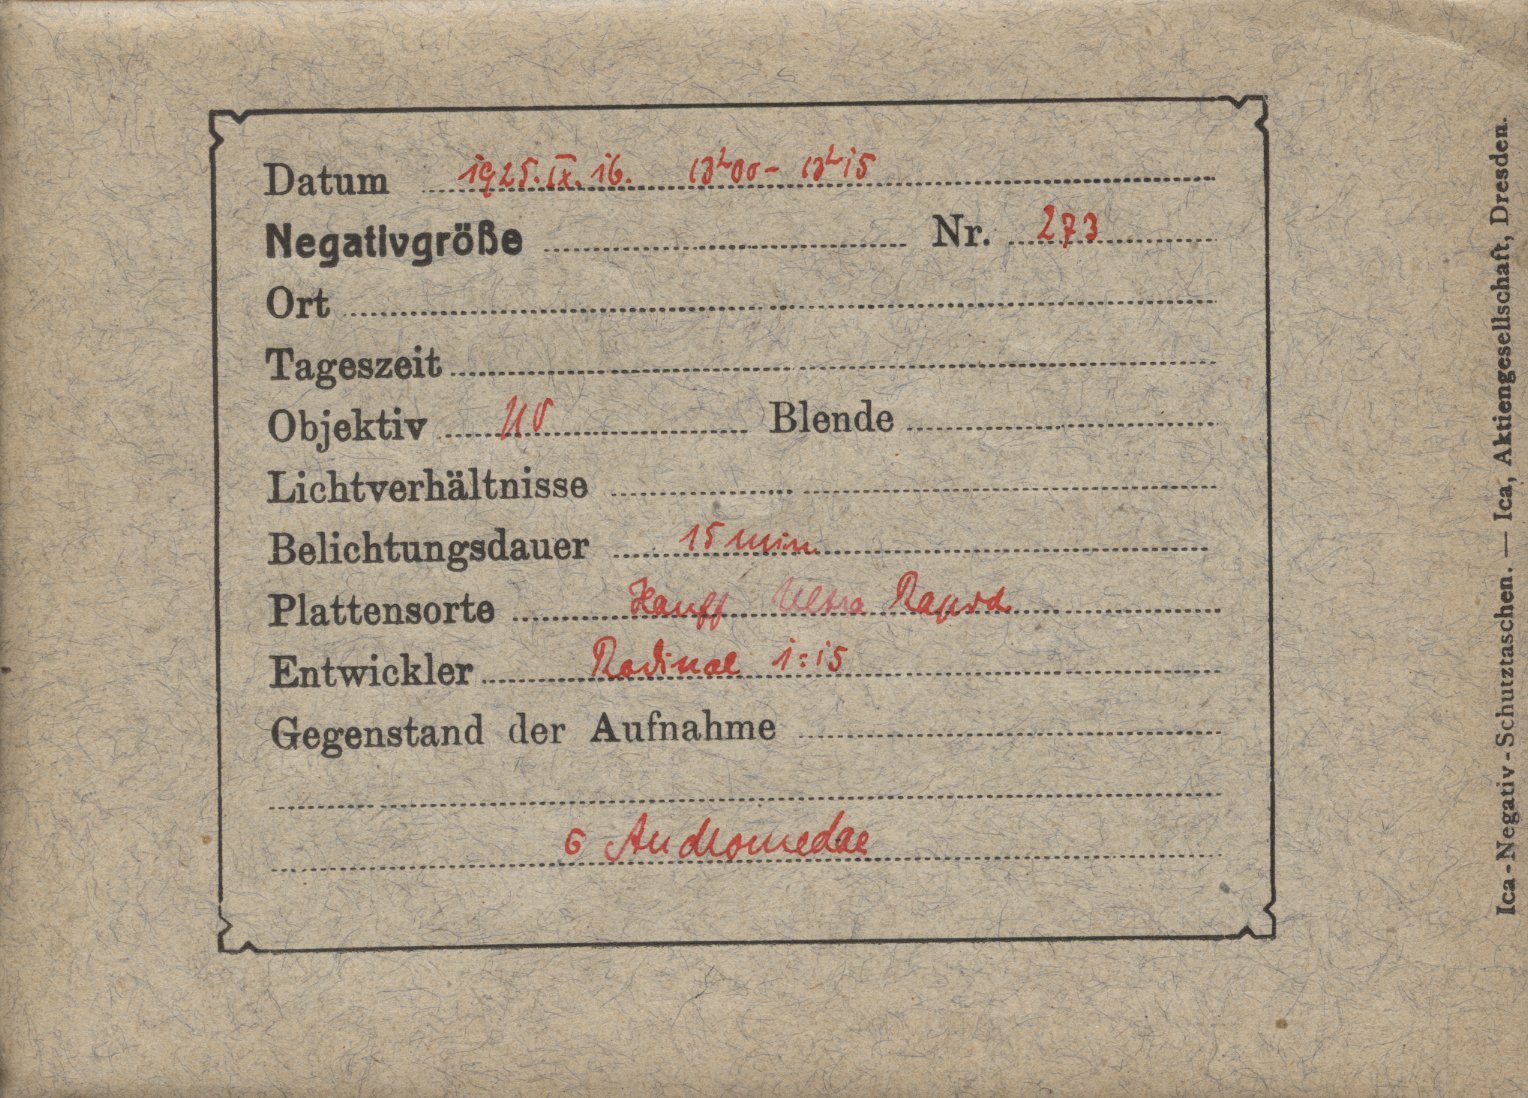 Datum 1925. IX. 16. 13ʰ00 - 13ʰ15
Negativgröße Nr. 273
Ort
Tageszeit
Objektiv UV Blende
Lichtverhältnisse
Belichtungsdauer 15 min
Plattensorte Hauff Ultra Rapid
Entwickler Rodinal 1:15
Gegenstand der Aufnahme
σ Andromedae
Ica-Negativ-Schutztaschen. — Ica, Aktiengesellschaft, Dresden.